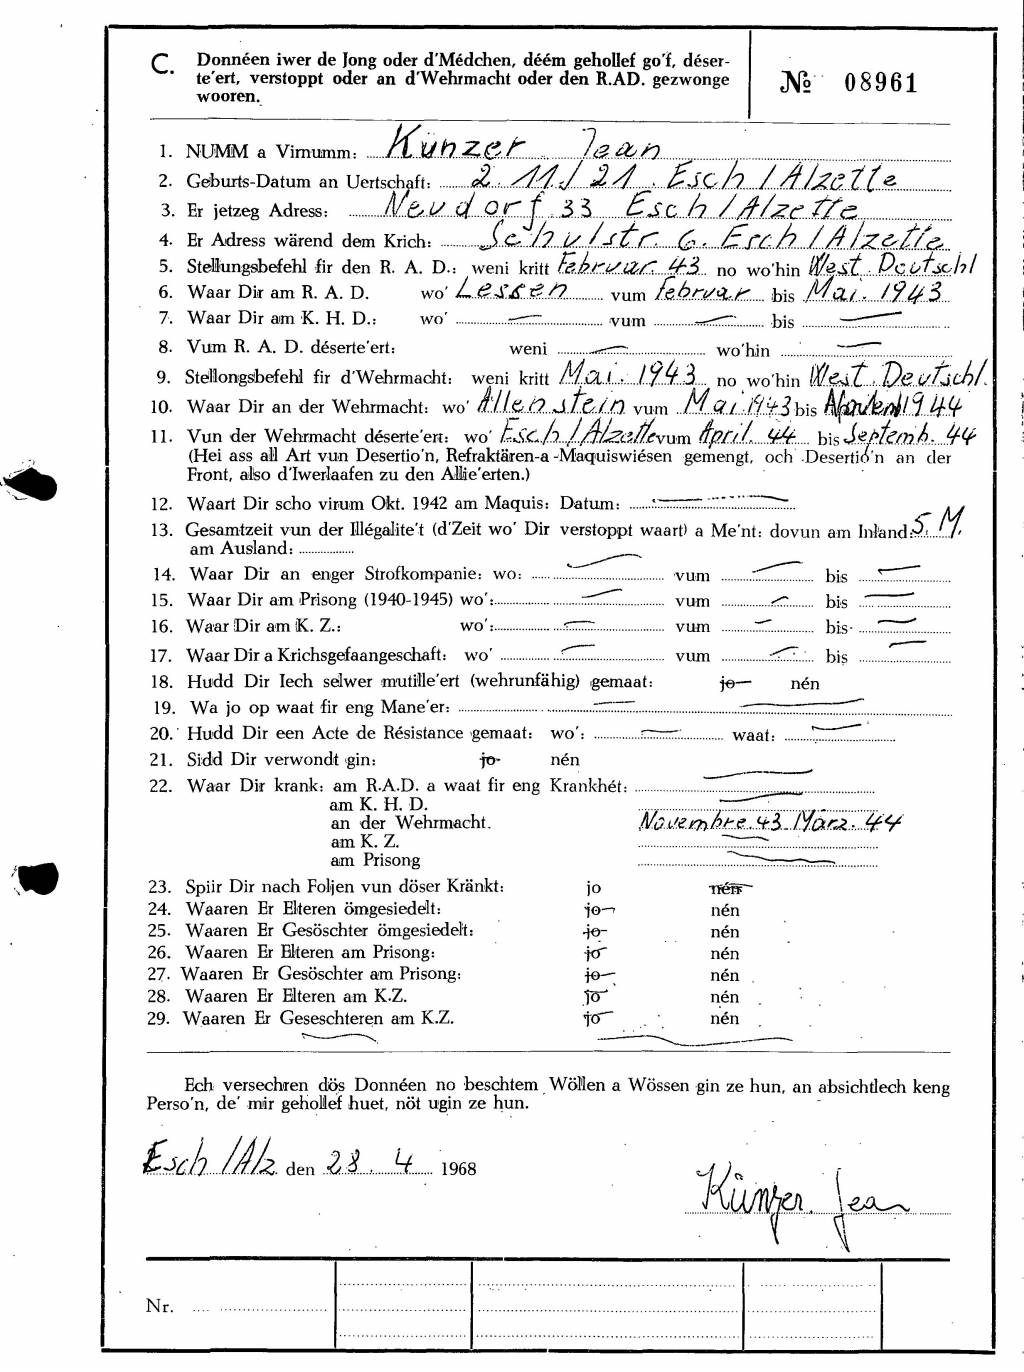 C. Donnéen iwer de Jong oder d'Médchen, déém gehollef go'f, déser-
te'ert, verstoppt oder an d'Wehrmacht oder den R.AD. gezwonge
wooren.
№ 08961
1. NUMM a Virnumm: Künzer Jean
2. Geburts-Datum an Uertschaft: 2. 11./21. Esch/Alzette
3. Er jetzeg Adress: Neudorf 33 Esch/Alzette
4. Er Adress wärend dem Krich: Schulstr. 6. Esch/Alzette
5. Stellungsbefehl fir den R. A. D.: weni kritt Februar. 43 no wo'hin West Deutschl
6. Waar Dir am R. A. D. wo' Lessen vum Februar bis Mai. 1943
7. Waar Dir am K. H. D.: wo' — vum — bis —
8. Vum R. A. D. déserte'ert: weni — wo'hin —
9. Stellongsbefehl fir d'Wehrmacht: weni kritt Mai. 1943 no wo'hin West. Deutschl.
10. Waar Dir an der Wehrmacht: wo' Allenstein vum Mai 1943 bis 1944
11. Vun der Wehrmacht déserte'ert: wo' Esch/Alzette vum April. 44 bis Septemb. 44
(Hei ass all Art vun Desertio'n, Refraktären-a-Maquiswiésen gemengt, och Desertio'n an der
Front, also d'Iwerlaafen zu den Allie'erten.)
12. Waart Dir scho virum Okt. 1942 am Maquis: Datum: —
13. Gesamtzeit vun der Illégalite't (d'Zeit wo' Dir verstoppt waart) a Me'nt: dovun am Inland: 5. M.
am Ausland:
14. Waar Dir an enger Strofkompanie: wo: — vum — bis —
15. Waar Dir am Prisong (1940-1945) wo': — vum — bis —
16. Waar Dir am K. Z.: wo': — vum — bis —
17. Waar Dir a Krichsgefaangeschaft: wo' — vum — bis —
18. Hudd Dir Iech selwer mutille'ert (wehrunfähig) gemaat: jo nén
19. Wa jo op waat fir eng Mane'er: —
20. Hudd Dir een Acte de Résistance gemaat: wo': — waat: —
21. Sidd Dir verwondt gin: jo nén
22. Waar Dir krank: am R.A.D. a waat fir eng Krankhét: —
am K. H. D. —
an der Wehrmacht. Novembre. 43. März. 44
am K. Z. —
am Prisong —
23. Spiir Dir nach Foljen vun döser Kränkt: jo nén
24. Waaren Er Elteren ömgesiedelt: jo nén
25. Waaren Er Gesöschter ömgesiedelt: jo nén
26. Waaren Er Elteren am Prisong: jo nén
27. Waaren Er Gesöschter am Prisong: jo nén
28. Waaren Er Elteren am K.Z. jo nén
29. Waaren Er Geseschteren am K.Z. jo nén
Ech versechren dös Donnéen no beschtem Wöllen a Wössen gin ze hun, an absichtlech keng
Perso'n, de' mir gehollef huet, nöt ugin ze hun.
Esch/Alz den 28. 4 1968
Künzer. Jean
Nr.